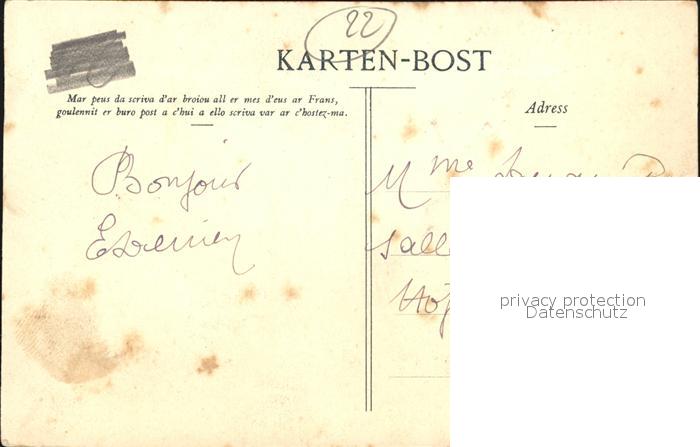 22
KARTEN-BOST
Mar peus da scriva d'ar broiou all er mes d'eus ar Frans,
goulennit er buro post a c'hui a ello scriva var ar c'hostez-ma.
Adress
Bonjour
Mme
Sall
privacy protection
Datenschutz